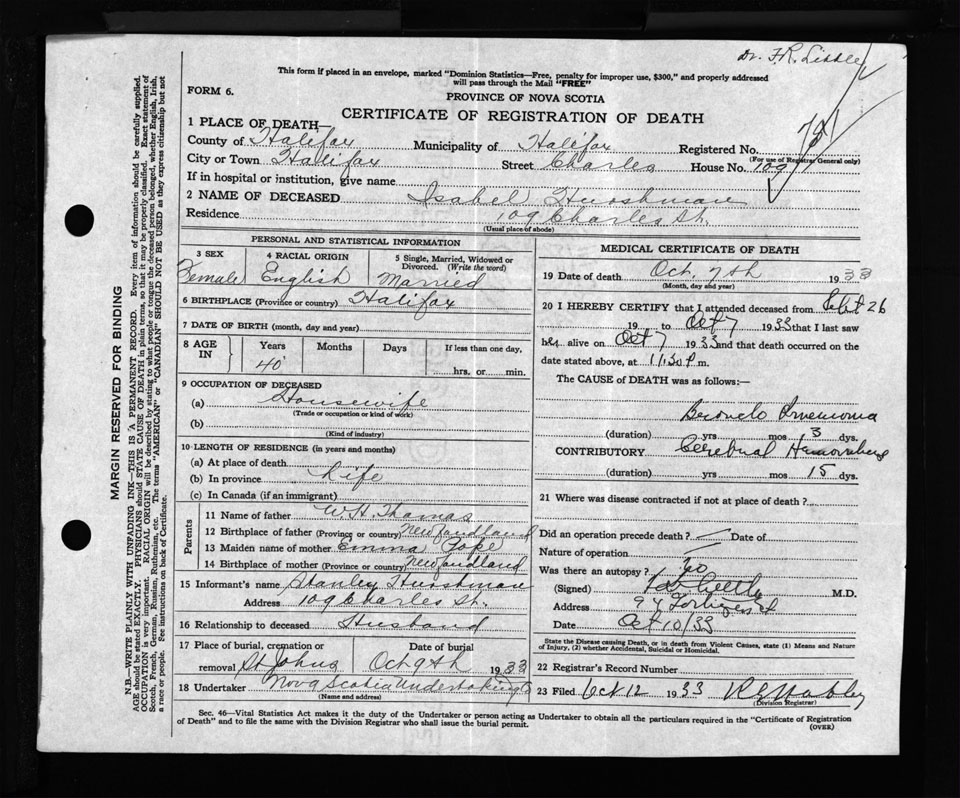 Dr. F.R. Little
This form if placed in an envelope, marked "Dominion Statistics—Free, penalty for improper use, $300," and properly addressed
will pass through the Mail "FREE"
FORM 6.
PROVINCE OF NOVA SCOTIA
CERTIFICATE OF REGISTRATION OF DEATH
1 PLACE OF DEATH—
County of Halifax Municipality of Halifax Registered No.
(For use of Registrar General only)
City or Town Halifax Street Charles House No. 109
If in hospital or institution, give name
2 NAME OF DECEASED Isabel Hurshman
Residence 109 Charles St.
(Usual place of abode)
PERSONAL AND STATISTICAL INFORMATION
3 SEX Female
4 RACIAL ORIGIN English
5 Single, Married, Widowed or Divorced. (Write the word) Married
6 BIRTHPLACE (Province or country) Halifax
7 DATE OF BIRTH (month, day and year)
8 AGE IN Years Months Days If less than one day,
40 hrs. or min.
9 OCCUPATION OF DECEASED
(a) Housewife
(Trade or occupation or kind of work)
(b)
(Kind of industry)
10 LENGTH OF RESIDENCE (in years and months)
(a) At place of death
(b) In province Life
(c) In Canada (if an immigrant)
Parents
11 Name of father W.H. Thomas
12 Birthplace of father (Province or country) Newfoundland
13 Maiden name of mother Emma Pope
14 Birthplace of mother (Province or country) Newfoundland
15 Informant's name Stanley Hurshman
Address 109 Charles St.
16 Relationship to deceased Husband
17 Place of burial, cremation or removal St Johns Date of burial Oct 9th 1933
18 Undertaker Nova Scotia Undertaking Co
(Name and address)
MEDICAL CERTIFICATE OF DEATH
19 Date of death Oct. 7th 1933
(Month, day and year)
20 I HEREBY CERTIFY that I attended deceased from Sept 26
19 to Oct 7 1933 that I last saw
her alive on Oct 7 1933 and that death occurred on the
date stated above, at 11.30 P.m.
The CAUSE of DEATH was as follows:—
Broncho Pneumonia
(duration) yrs mos 3 dys.
CONTRIBUTORY Cerebral Hemorrhage
(duration) yrs mos 15 dys.
21 Where was disease contracted if not at place of death?
Did an operation precede death? Date of
Nature of operation
Was there an autopsy? No
(Signed) M.D.
Address
Date Oct 10/33
State the Disease causing Death, or in death from Violent Causes, state (1) Means and Nature
of Injury, (2) whether Accidental, Suicidal or Homicidal.
22 Registrar's Record Number
23 Filed Oct 12 1933
(Division Registrar)
Sec. 46—Vital Statistics Act makes it the duty of the Undertaker or person acting as Undertaker to obtain all the particulars required in the "Certificate of Registration
of Death" and to file the same with the Division Registrar who shall issue the burial permit.
(OVER)
MARGIN RESERVED FOR BINDING
N.B.—WRITE PLAINLY WITH UNFADING INK—THIS IS A PERMANENT RECORD. Every item of information should be carefully supplied.
AGE should be stated EXACTLY. PHYSICIANS should STATE CAUSE OF DEATH in plain terms, so that it may be properly classified. Exact statement of
OCCUPATION is very important. RACIAL ORIGIN will be described by stating to what people or tongue the deceased person belonged, whether English, Irish,
Scotch, French, German, Russian, Ruthenian, etc. The terms "AMERICAN" or "CANADIAN" SHOULD NOT BE USED as they express citizenship but not
a race or people. See instructions on back of Certificate.